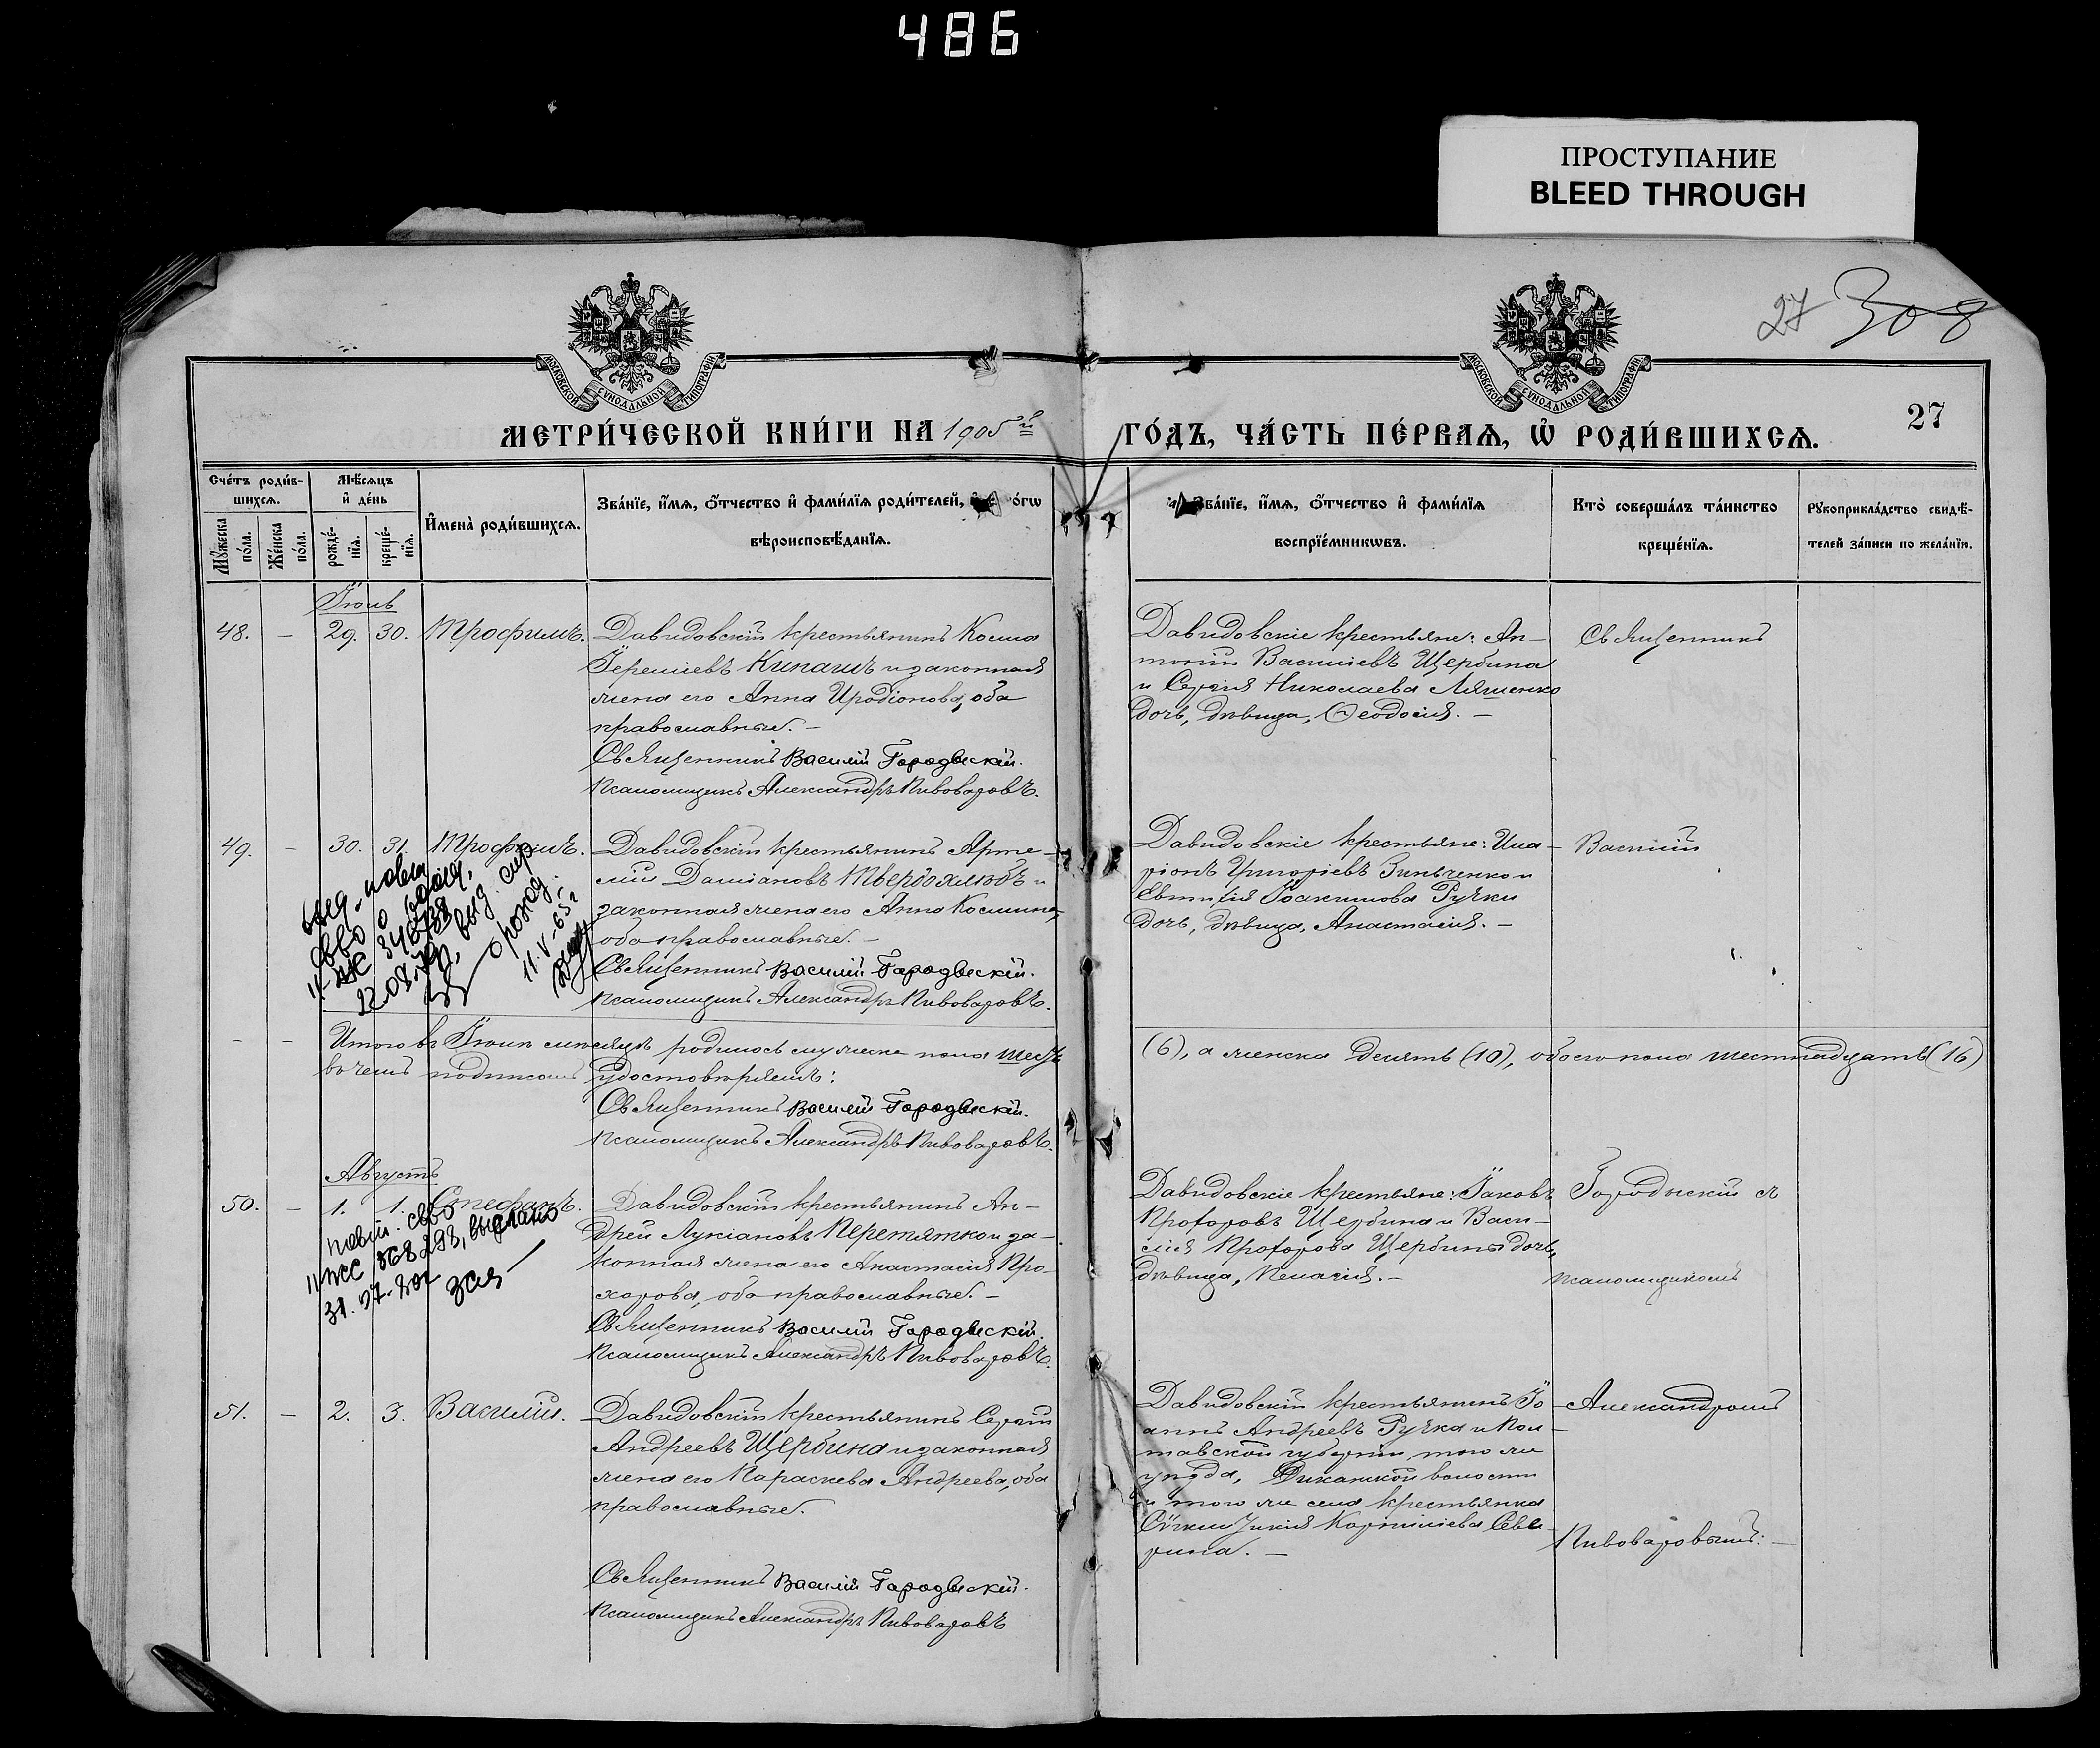 486
ПРОСТУПАНИЕ
BLEED THROUGH
27 308
МОСКОВСКОЙ СѴНОДАЛЬНОЙ ТИПОГРАФІИ
МОСКОВСКОЙ СѴНОДАЛЬНОЙ ТИПОГРАФІИ
МЕТРИ́ЧЕСКОЙ КНИ́ГИ НА 1905й ГО́ДЪ, ЧА́СТЬ ПЕ́РВАѦ, Ѡ҆ РОДИ́ВШИХСѦ.
27
Сче́тъ роди́в-
шихсѧ.
Мꙋ́жеска по́ла.
Же́нска по́ла.
Мѣ́сѧцъ
и҆ де́нь
рожде́-
нїѧ.
креще́-
нїѧ.
И҆мена̀ роди́вшихсѧ.
Зва́нїе, и҆́мѧ, ѻ҆́тчество и҆ фами́лїѧ роди́телей,
вѣроисповѣ́данїѧ.
Зва́нїе, и҆́мѧ, ѻ҆́тчество и҆ фами́лїѧ
воспрїе́мникѡвъ.
Кто̀ соверша́лъ та́инство
креще́нїѧ.
Рꙋкоприкла́дство свидѣ́-
телей за́писи по жела́нїю.
Іюль
48. – 29. 30. Трофимъ.
Давидовскій крестьянинъ Косма
Іереміевъ Кипашъ и законная
жена его Анна Иродіонова, оба
православные. –
Священникъ Василій Городыскій.
Псаломщикъ Александръ Пивоваровъ.
Давидовскіе крестьяне: Ан-
тоній Василіевъ Щербина
и Сергія Николаева Ляшенко
дочь, дѣвица, Ѳеодосія. –
Священникъ
49. – 30. 31. Трофимъ.
Давидовскій крестьянинъ Арте-
мій Даміановъ Твердохлѣбъ и
законная жена его Анна Космина,
оба православные. –
Священникъ Василій Городыскій.
Псаломщикъ Александръ Пивоваровъ.
Давидовскіе крестьяне: Ила-
ріонъ Григоріевъ Зинченко и
Евтихія Іоакимова Ручки
дочь, дѣвица, Анастасія. –
Василій
о рожд.
11.V-65г
– – Итого въ Іюлѣ мѣсяцѣ родилось мужеска пола шесть (6), а женска десять (10), обоего пола шестнадцать (16)
въ чемъ подписомъ удостовѣряемъ:
Священникъ Василій Городыскій.
Псаломщикъ Александръ Пивоваровъ.
Августъ
50. – 1. 1. Стефанъ.
Давидовскій крестьянинъ Ан-
дрей Лукіановъ Перетятко и за-
конная жена его Анастасія Про-
хорова, оба православные. –
Священникъ Василій Городыскій.
Псаломщикъ Александръ Пивоваровъ.
Давидовскіе крестьяне: Іаковъ
Прохоровъ Щербина и Васи-
лія Прохорова Щербины дочь,
дѣвица, Пелагія. –
Городыскій съ
псаломщикомъ
51. – 2. 3. Василій.
Давидовскій крестьянинъ Сергій
Андреевъ Щербина и законная
жена его Параскева Андреева, оба
православные.
Священникъ Василій Городыскій.
Псаломщикъ Александръ Пивоваровъ
Давидовскій крестьянинъ Іо-
аннъ Андреевъ Ручка и Пол-
тавской губерніи, того же
уѣзда, Диканской волости
и того же села крестьянка
Корниліева
Александромъ
Пивоваровымъ: –